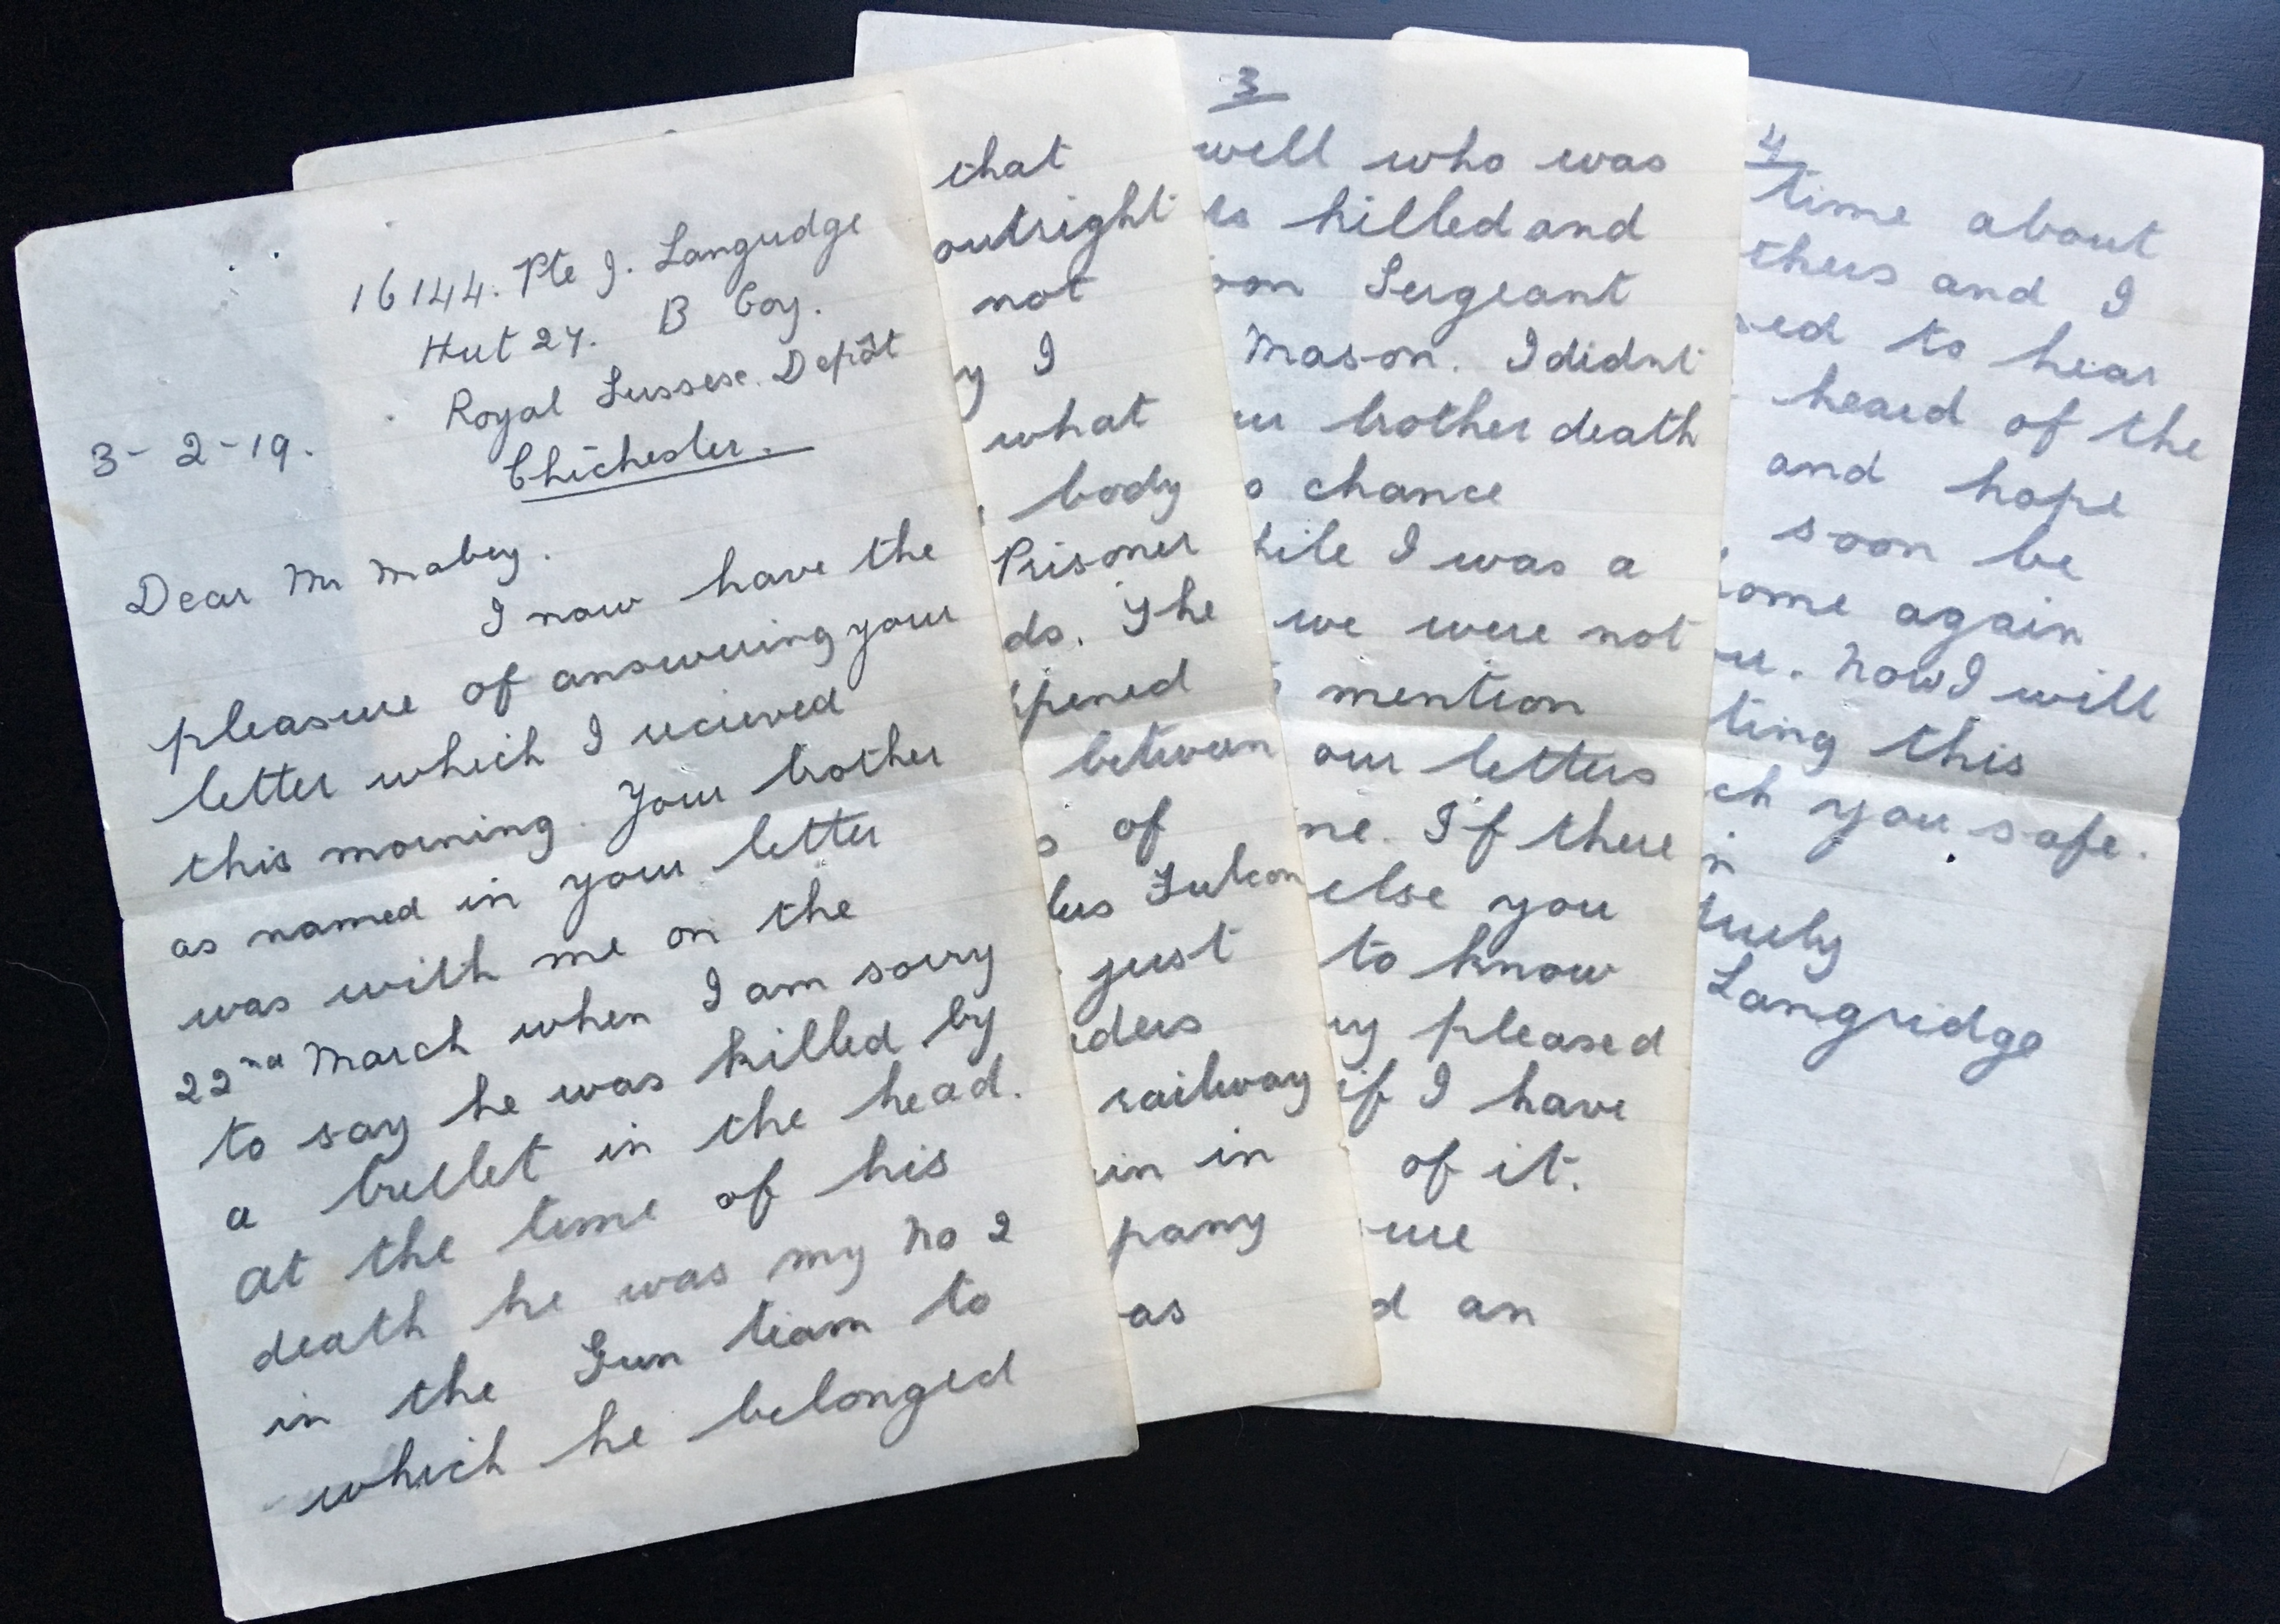 16144. Pte J. Langridge
Hut 27. B Coy.
Royal Sussex. Depôt
Chichester.
3-2-19.
Dear Mr Mabey.
I now have the
pleasure of answering your
letter which I recieved
this morning. Your brother
as named in your letter
was with me on the
22nd March when I am sorry
to say he was killed by
a bullet in the head.
at the time of his
death he was my No 2
in the Gun team to
which he belonged
that
outright
not
y I
what
body
Prisoner
ds. The
pened
between
of
just
ders
railway
in in
pany
as
3
well who was
killed and
oon Sergeant
Mason. I didnt
ur brother death
o chance
hile I was a
we were not
mention
our letters
me. If there
else you
to know
ry pleased
if I have
of it.
ure
d an
4
time about
thers and I
sed to hear
heard of the
and hope
soon be
ome again
ou. Now I will
ting this
ch you safe.
n
truly
Langridge